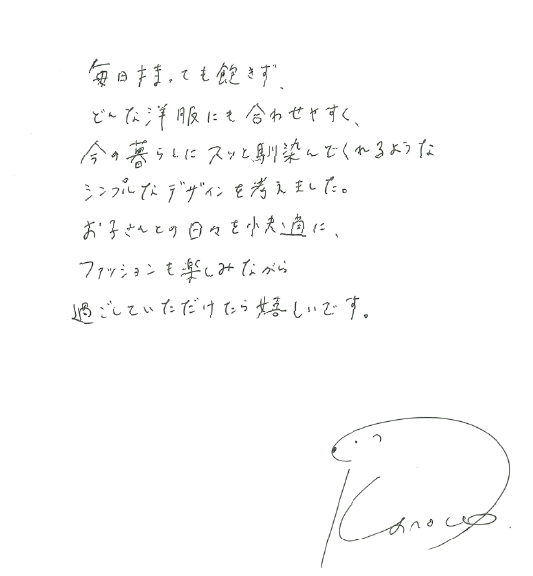 毎日使っても飽きず、
どんな洋服にも合わせやすく、
今の暮らしにスッと馴染んでくれるような
シンプルなデザインを考えました。
お子さんとの日々を快適に、
ファッションも楽しみながら
過ごしていただけたら嬉しいです。